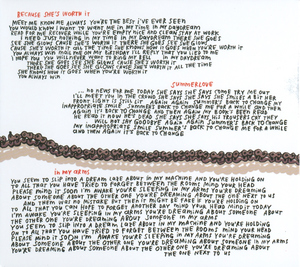 BECAUSE SHE'S WORTH IT
MEET ME KNOW ME ALWAYS YOU'RE THE BEST I'VE EVER SEEN
YOU KNOW I WANT TO WANT ME IN MY TIME IN MY DAYDREAM
READ FOR ME RECOVER WHILE YOU'RE EMPTY NICE AND CLEAN STAY AT WORK
I NEED JUST NOTHING IN MY TIME IN MY DAYDREAM THERE SHE GOES
SHE GLOWS CAUSE SHE'S WORTH IT THERE SHE GOES SHE GLOWS
CAUSE SHE'S WORTH IT ALL THE TIME SHE KNOWS HOW IT GOES WHEN YOU'RE WORTH IT
YOU ALWAYS WIN MAIL ME ON MY BIRTHDAY I'LL REPLY THAT YOU LIED TO ME
I HOPE THAT YOU WILL NEVER WANT TO RING MY BELL IN MY DREAM
THERE SHE GOES SEE SHE GLOWS CAUSE SHE'S WORTH IT
THERE SHE GOES SEE SHE GLOWS CAUSE SHE'S WORTH IT ALL THE TIME
SHE KNOWS HOW IT GOES WHEN YOU'RE WORTH IT
YOU ALWAYS WIN
SUMMERLOVE
... NO NEWS FOR ME TODAY SHE SAYS SHE SAYS COME OVER
I'LL MEET YOU IN THE CROWD SHE SAYS SHE SAYS SHE'S AT A BUS RIDE
FRONT LIGHT IS STILL LIT AGAIN AGAIN SUMMER'S BACK TO CHANGE MY
INAPPROPRIATE SMILE SUMMER'S BACK TO CHANGE ME FOR A WHILE AND THEN
AGAIN IT'S BACK TO CHANGE
HE SAYS
WILL NOT SAY GOODBYE AGAIN AGAIN SUMMER'S BACK TO CHANGE
MY INAPPROPRIATE SMILE SUMMER'S BACK TO CHANGE ME FOR A WHILE
AND THEN AGAIN IT'S BACK TO CHANGE
IN MY ARMS
YOU SEEM TO SLIP INTO A DREAM LADY ABOUT IN MY MACHINE AND YOU'RE HOLDING ON
TO ALL THAT YOU HAVE TRIED TO FORGET BETWEEN THE ROOMS MIND YOUR HEAD
PLEASE MIND IT SOON I'M AWAKE YOU'RE SLEEPING IN MY ARMS YOU'RE DREAMING
ABOUT SOMEONE ABOUT THE OTHER ONE YOU'RE DREAMING ABOUT THE ONE NEXT TO US
AND THERE WAS NO MISTAKE BUT THEN IT MIGHT BE FAKE IF YOU'RE HOLDING ON
TO ALL THAT YOU CAN HOPE TO FORGET ANOTHER DAY MIND YOUR HEAD MIND IT TODAY
I'M AWAKE YOU'RE SLEEPING IN MY ARMS YOU'RE DREAMING ABOUT SOMEONE ABOUT
THE OTHER ONE YOU'RE DREAMING ABOUT SOMEONE IN MY ARMS
YOU SEEM TO SLIP INTO A DREAM LADY ABOUT IN MY MACHINE AND YOU'RE HOLDING
ON TO ALL THAT YOU HAVE TRIED TO FORGET BETWEEN THE ROOMS MIND YOUR HEAD
PLEASE MIND IT SOON I'M AWAKE YOU'RE SLEEPING IN MY ARMS YOU'RE DREAMING
ABOUT SOMEONE ABOUT THE OTHER ONE YOU'RE DREAMING ABOUT SOMEONE IN MY ARMS
YOU'RE DREAMING ABOUT SOMEONE ABOUT THE OTHER ONE YOU'RE DREAMING ABOUT
THE ONE NEXT TO US